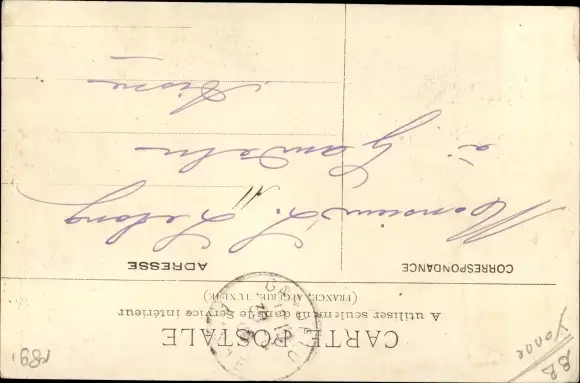 CARTE POSTALE
A utiliser seulement dans le Service intérieur
(FRANCE, ALGÉRIE, TUNISIE)
CORRESPONDANCE
ADRESSE
Monsieur L. Lelong
à Gandelu
Aisne
Yonne